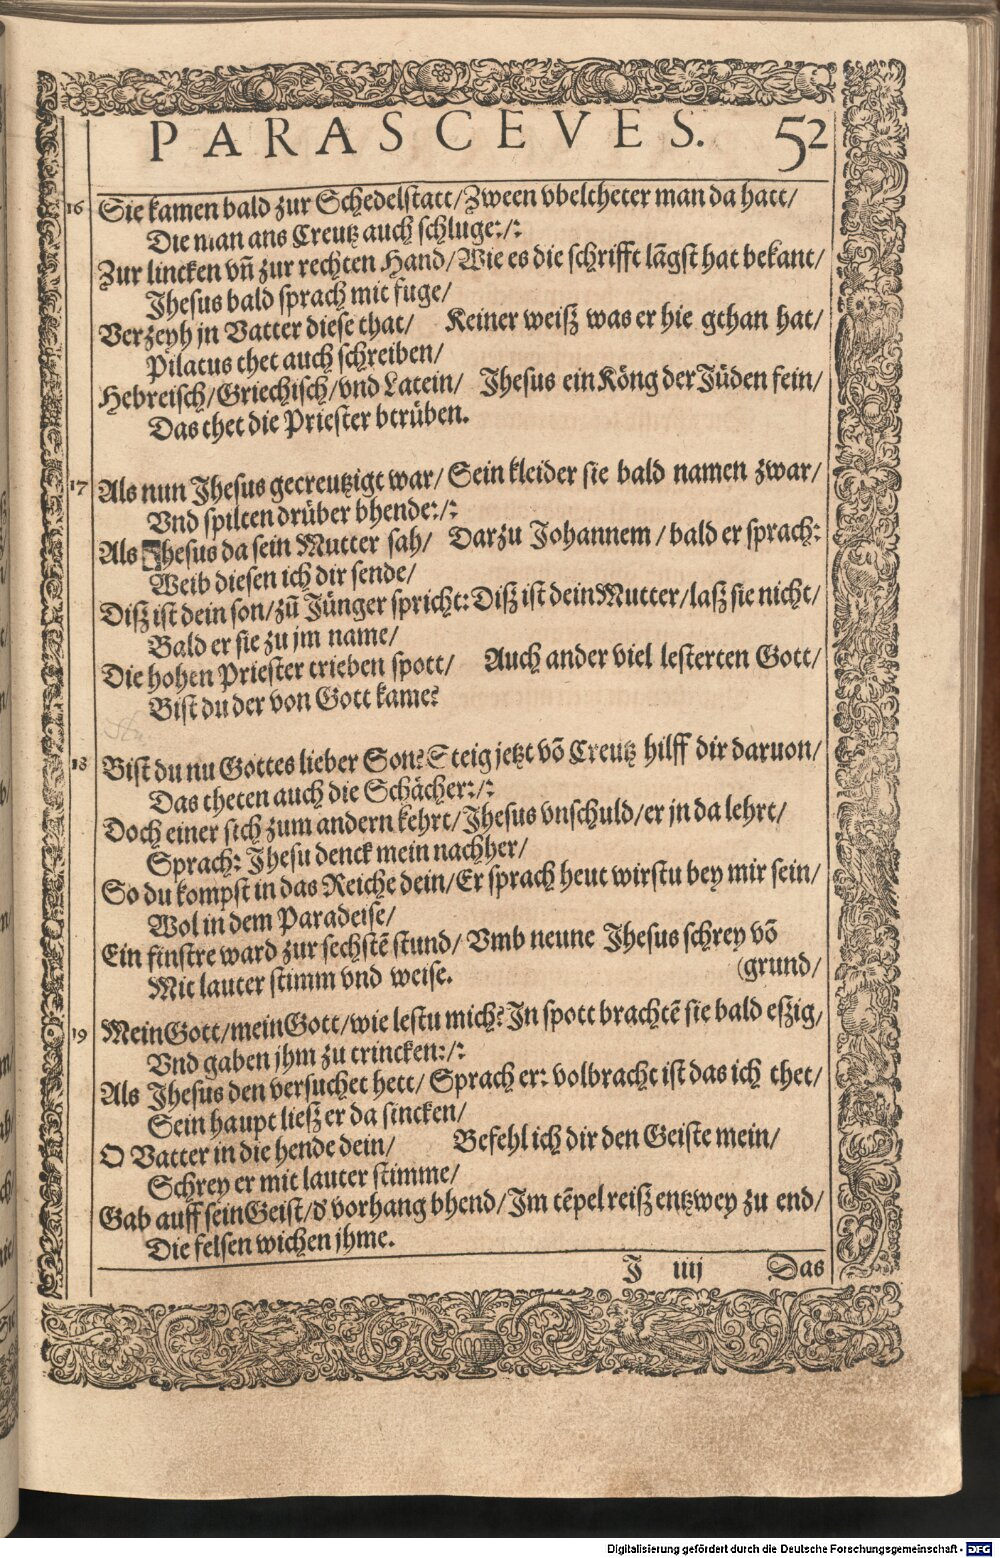 PARASCEVES. 52
16 Sie kamen bald zur Schedelstatt/Zween vbeltheter man da hatt/
Die man ans Creutz auch schluge:/:
Zur lincken vñ zur rechten Hand/Wie es die schrifft lãgst hat bekant/
Jhesus bald sprach mit fuge/
Verzeyh jn Vatter diese that/ Keiner weiß was er hie gthan hat/
Pilatus thet auch schreiben/
Hebreisch/Griechisch/vnd Latein/ Jhesus ein Köng der Jüden fein/
Das thet die Priester btrüben.
17 Als nun Jhesus gecreutzigt war/ Sein kleider sie bald namen zwar/
Vnd spilten drüber bhende:/:
Als Jhesus da sein Mutter sah/ Darzu Johannem/ bald er sprach:
Weib diesen ich dir sende/
Diß ist dein son/zũ Jünger spricht: Diß ist dein Mutter/laß sie nicht/
Bald er sie zu jm name/
Die hohen Priester trieben spott/ Auch ander viel lesterten Gott/
Bist du der von Gott kame?
18 Bist du nu Gottes lieber Son? Steig jetzt võ Creutz hilff dir daruon/
Das theten auch die Schächer:/:
Doch einer sich zum andern kehrt/Jhesus vnschuld/er jn da lehrt/
Sprach: Jhesu denck mein nachher/
So du kompst in das Reiche dein/Er sprach heut wirstu bey mir sein/
Wol in dem Paradeise/
Ein finstre ward zur sechstẽ stund/ Vmb neune Jhesus schrey võ
(grund/
Mit lauter stimm vnd weise.
19 Mein Gott/mein Gott/wie lestu mich? In spott brachtẽ sie bald eßig/
Vnd gaben jhm zu trincken:/:
Als Jhesus den versuchet hett/ Sprach er: volbracht ist das ich thet/
Sein haupt ließ er da sincken/
O Vatter in die hende dein/ Befehl ich dir den Geiste mein/
Schrey er mit lauter stimme/
Gab auff sein Geist/d' vorhang bhend/Im tẽpel reiß entzwey zu end/
Die felsen wichen jhme.
J iiij Das
Digitalisierung gefördert durch die Deutsche Forschungsgemeinschaft - DFG